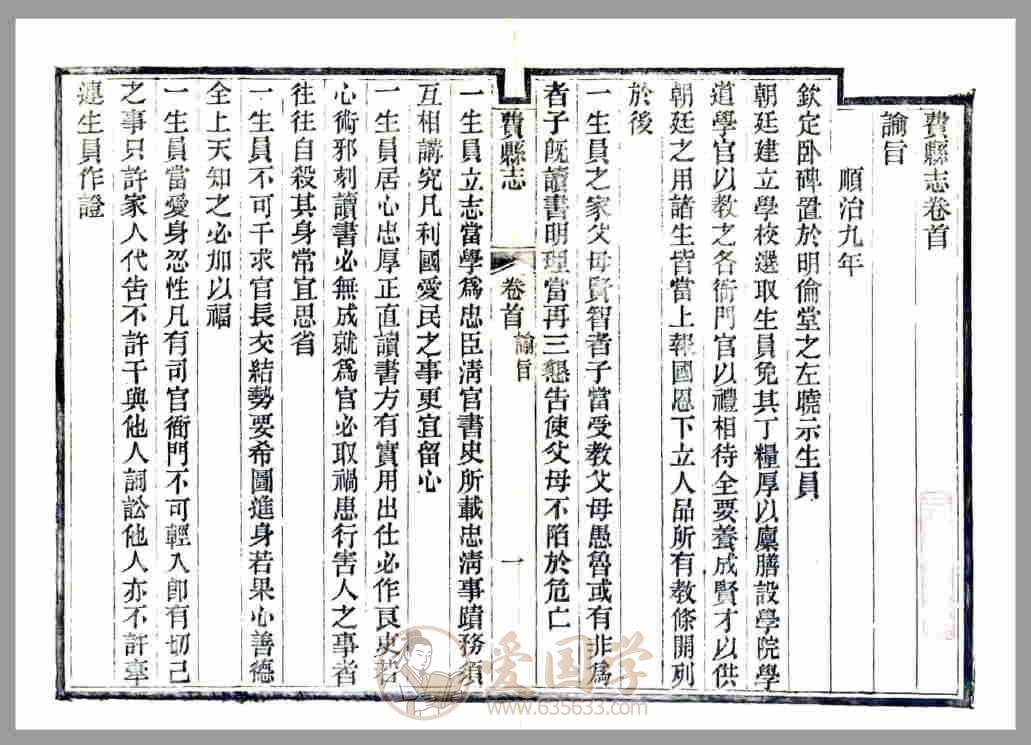 費縣志卷首
諭旨
順治九年
欽定卧碑置於明倫堂之左曉示生員
朝廷建立學校選取生員免其丁糧厚以廩膳設學院學
道學官以教之各衙門官以禮相待全要養成賢才以供
朝廷之用諸生皆當上報國恩下立人品所有教條開列
於後
一生員之家父母賢智者子當受教父母愚魯或有非爲
者子旣讀書明理當再三懇告使父母不陷於危亡
費縣志
卷首
諭旨
一
一生員立志當學爲忠臣淸官書史所載忠淸事蹟務須
互相講究凡利國愛民之事更宜留心
一生員居心忠厚正直讀書方有實用出仕必作良吏若
心術邪刻讀書必無成就爲官必取禍患行害人之事者
往往自殺其身常宜思省
一生員不可干求官長交結勢要希圖進身若果心善德
全上天知之必加以福
一生員當愛身忍性凡有司官衙門不可輕入卽有切己
之事只許家人代告不許干與他人詞訟他人亦不許牽
連生員作證
爱国学
www.635633.com